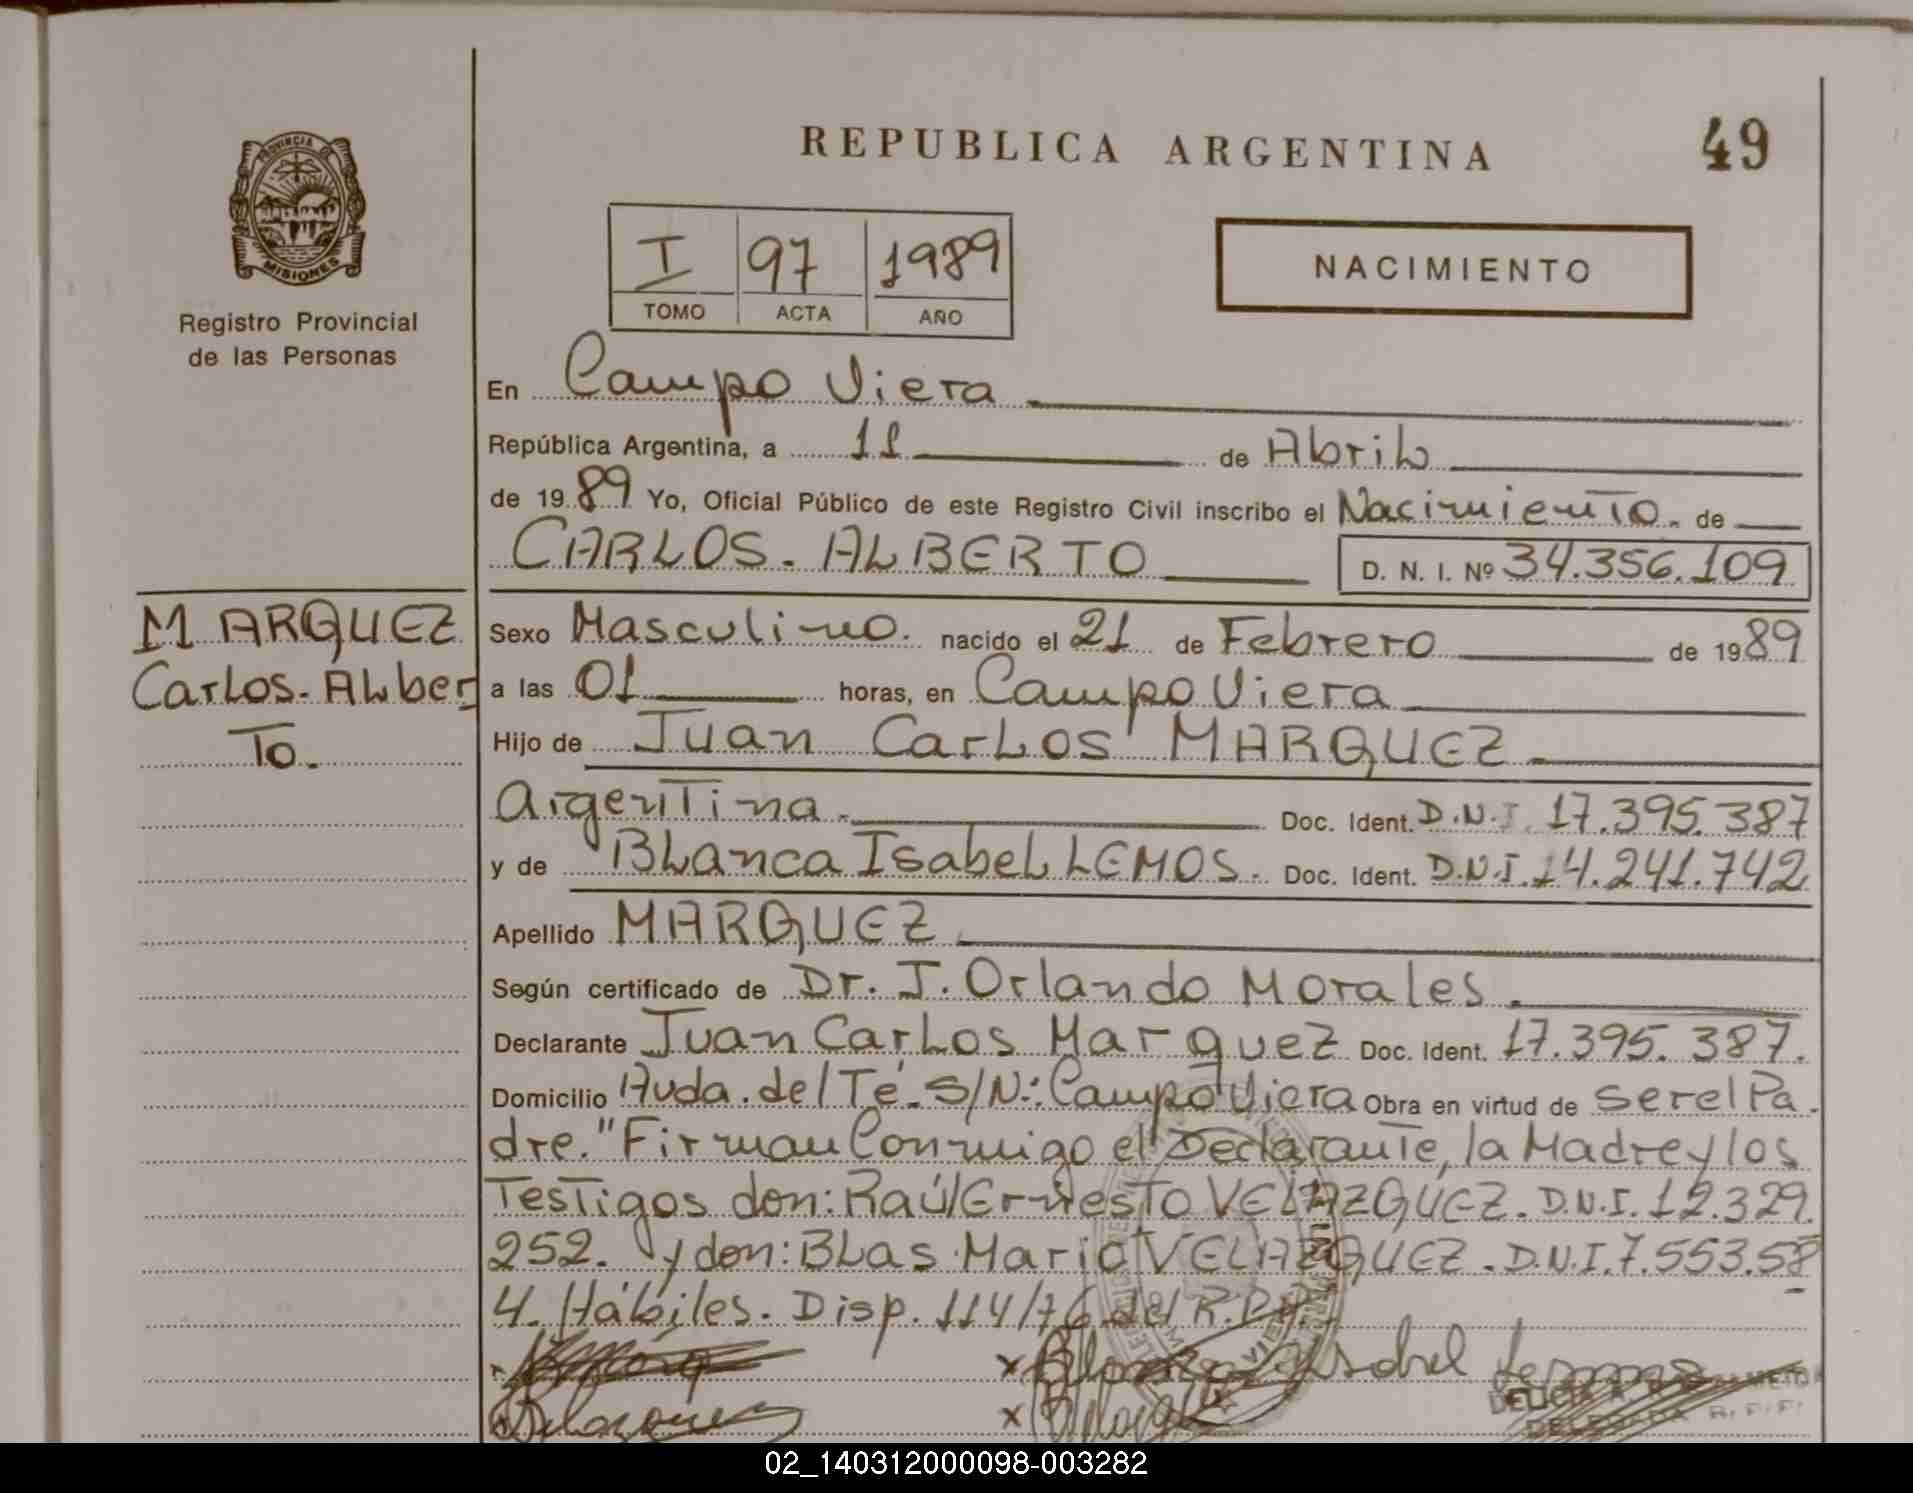 REPUBLICA ARGENTINA
49
PROVINCIA DE
MISIONES
Registro Provincial
de las Personas
I 97 1989
TOMO ACTA AÑO
NACIMIENTO
En Campo Viera
República Argentina, a 11 de Abril
de 1989 Yo, Oficial Público de este Registro Civil inscribo el Nacimiento. de
CARLOS. ALBERTO D. N. I. Nº 34.356.109
MARQUEZ
Carlos. Alber
To.
Sexo Masculino. nacido el 21 de Febrero de 1989
a las 01 horas, en Campo Viera
Hijo de Juan Carlos MARQUEZ
Argentina. Doc. Ident. D.N.I. 17.395.387
y de Blanca Isabel LEMOS. Doc. Ident. D.N.I. 14.241.742
Apellido MARQUEZ
Según certificado de Dr. J. Orlando Morales
Declarante Juan Carlos Marquez Doc. Ident. 17.395.387.
Domicilio Avda. del Té. S/N: Campo Viera Obra en virtud de ser el Pa
dre." Firman Conmigo el Declarante, la Madre y los
Testigos don: Raúl Ernesto VELAZQUEZ. D.N.I. 12.329.
252. y don: Blas Mario VELAZQUEZ. D.N.I. 7.553.58
4. Hábiles. Disp. 114/76 del R.P.P.
x Blanca Ysabel Lemos
x
DELEGADA R.P.P.
02_140312000098-003282